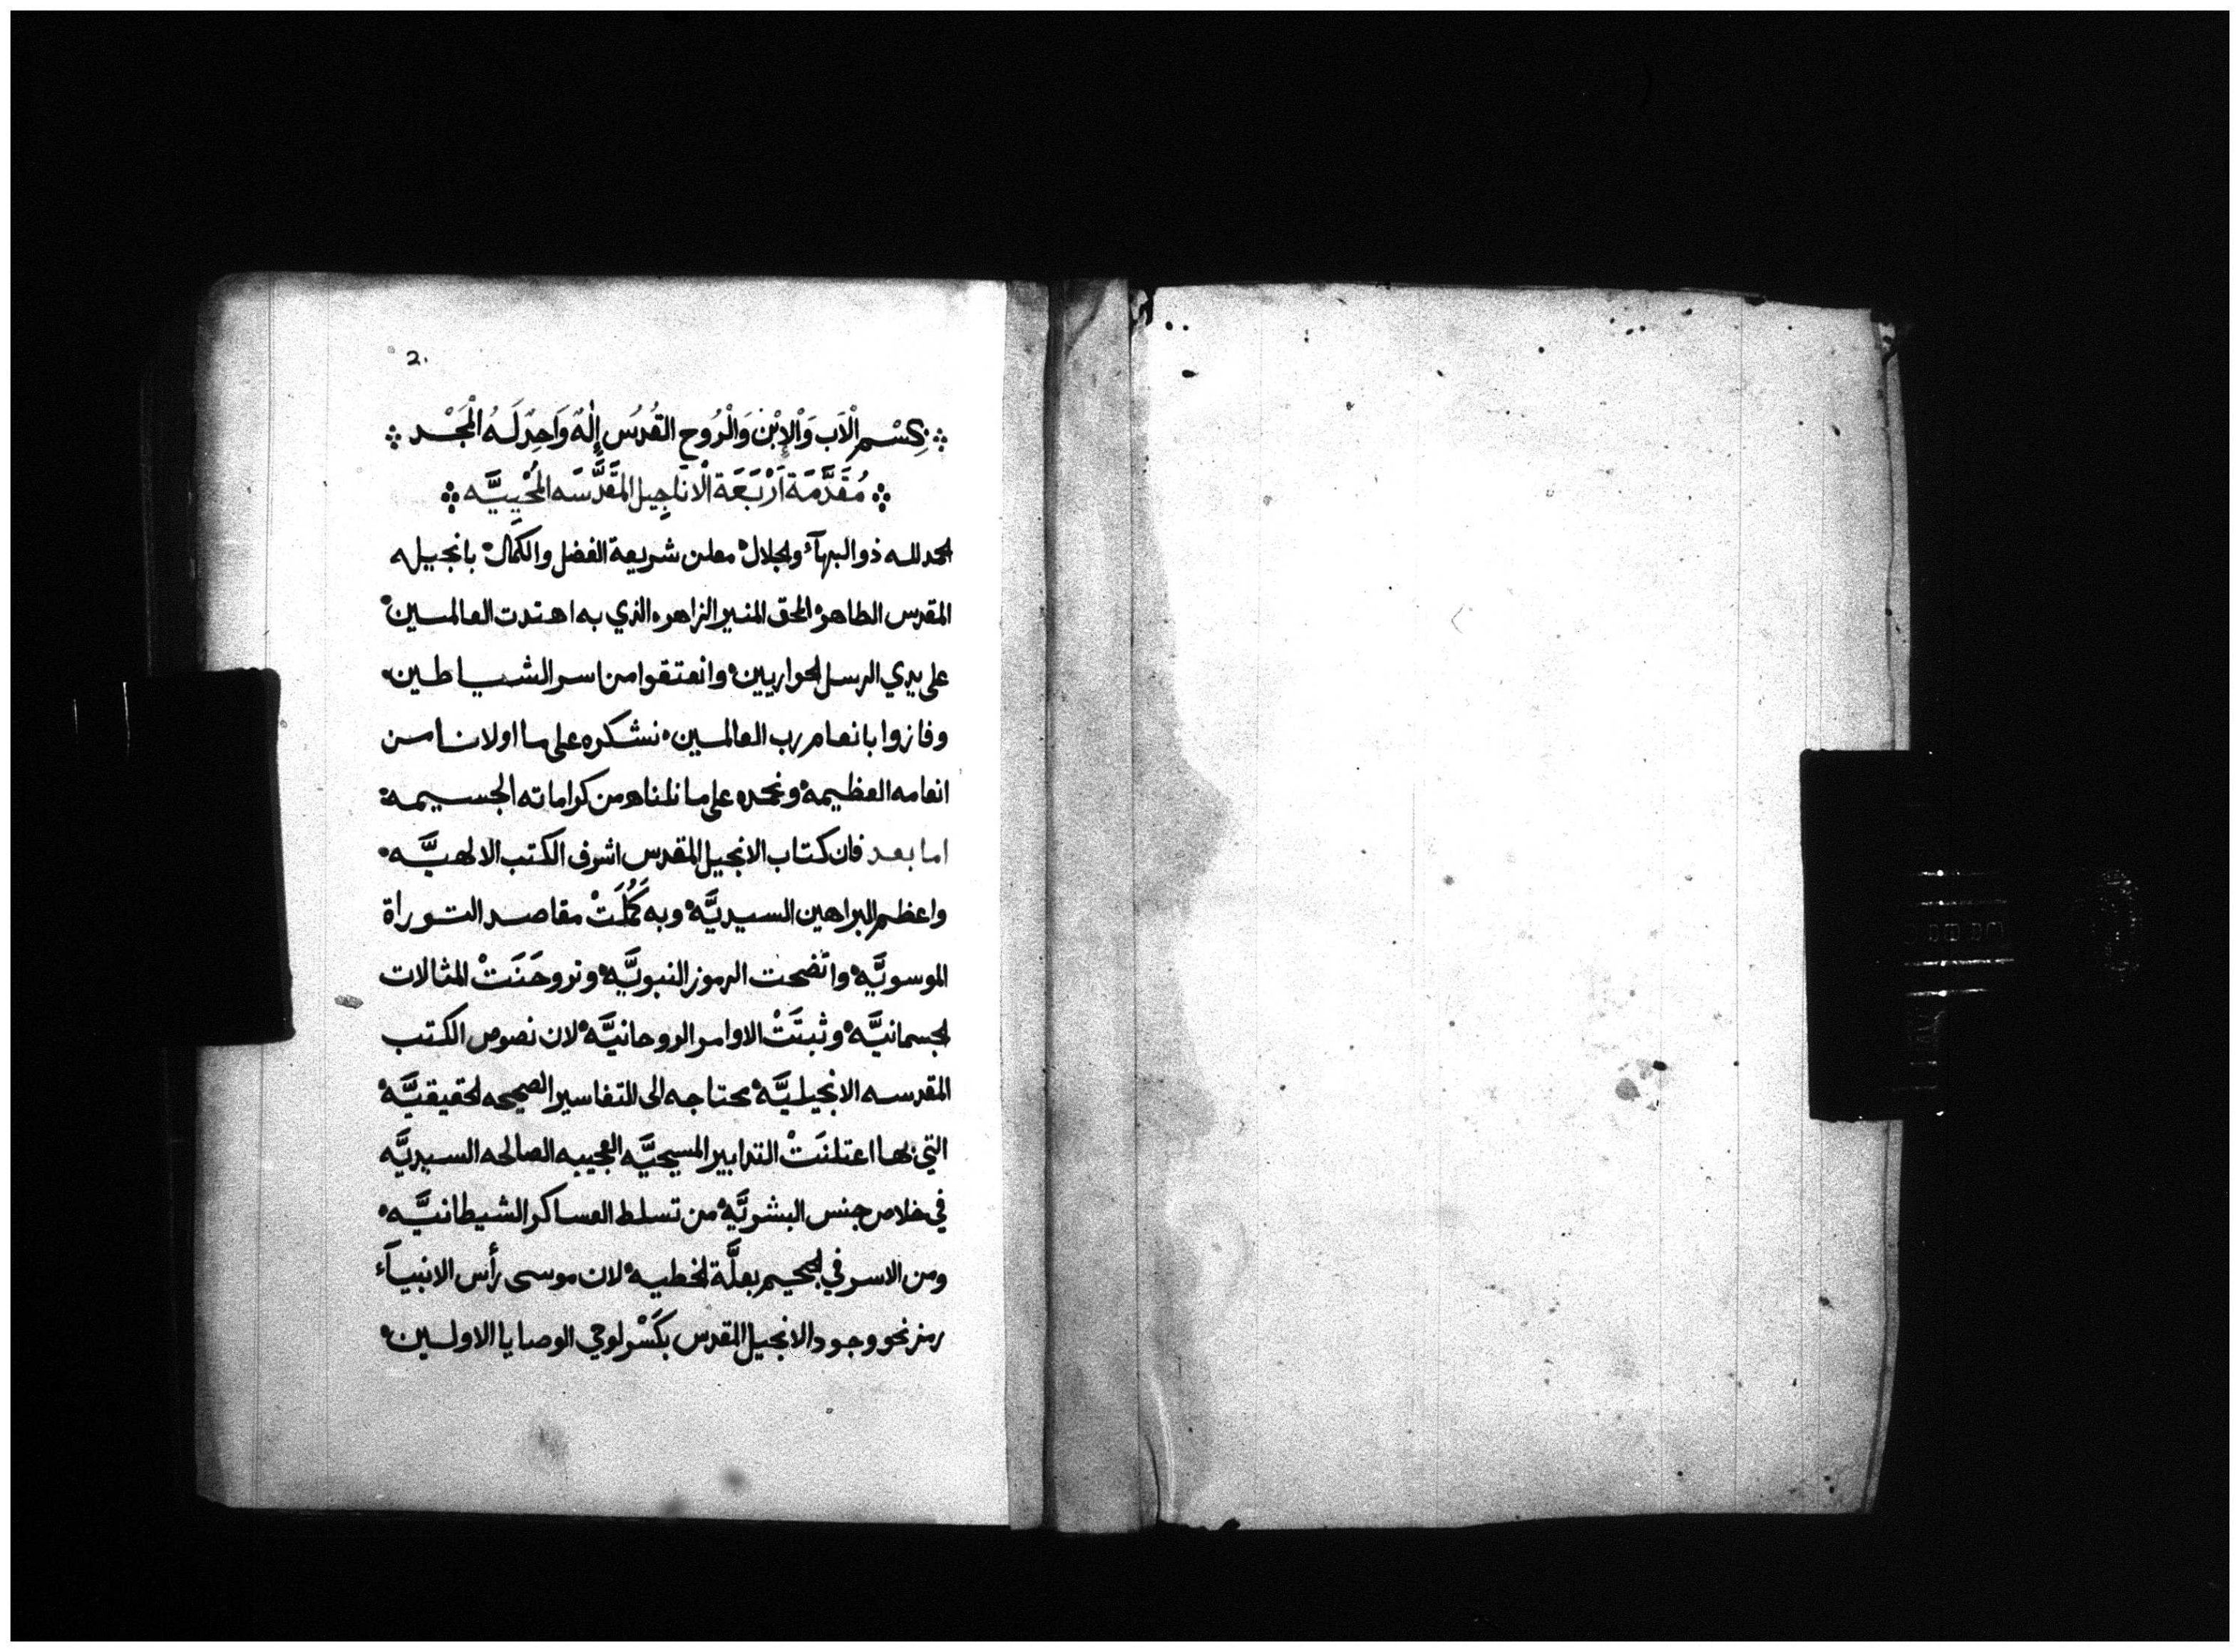 2.
بِسْمِ الْآبِ وَالْإِبْنِ وَالْرُوحِ القُدُسِ إِلٰهٌ وَاحِدٌ لَهُ الْمَجْد
مُقَدَّمَة اَرْبَعَة الْاناجِيل المقَدَّسَه المُحْيِيَّه
الحمد لله ذو البهآء والجلال معلن شريعة الفضل والكمال بانجيله
المقدس الطاهر الحق المنير الزاهر الذي به اهتدت العالمين
على يدي الرسل الحواريين وانعتقوا من اسر الشياطين
وفازوا بانعام رب العالمين نشكره على ما اولانا من
انعامه العظيمة ونحمده على ما نلناه من كراماته الجسيمة
اما بعد فان كتاب الانجيل المقدس اشرف الكتب الالهيَّه
واعظم البراهين السيديَّه وبه كَمُلَتْ مقاصد التوراة
الموسويَّه واتضحت الرموز النبويَّه وتروحَنَتْ المثالات
الجسمانيَّه وثبتَتْ الاوامر الروحانيَّه لان نصوص الكتب
المقدسه الانجيليَّه محتاجه الى التفاسير الصحيحه الحقيقيَّه
التي بها اعتلنَتْ التدابير المسيحيَّه العجيبه الصالحه السيديَّه
في خلاص جنس البشريَّه من تسلط العساكر الشيطانيَّه
ومن الاسر في الجحيم بعلَّة الخطيه لان موسى رأس الانبيآء
رمز نحو وجود الانجيل المقدس بكَسْر لوحي الوصايا الاولين